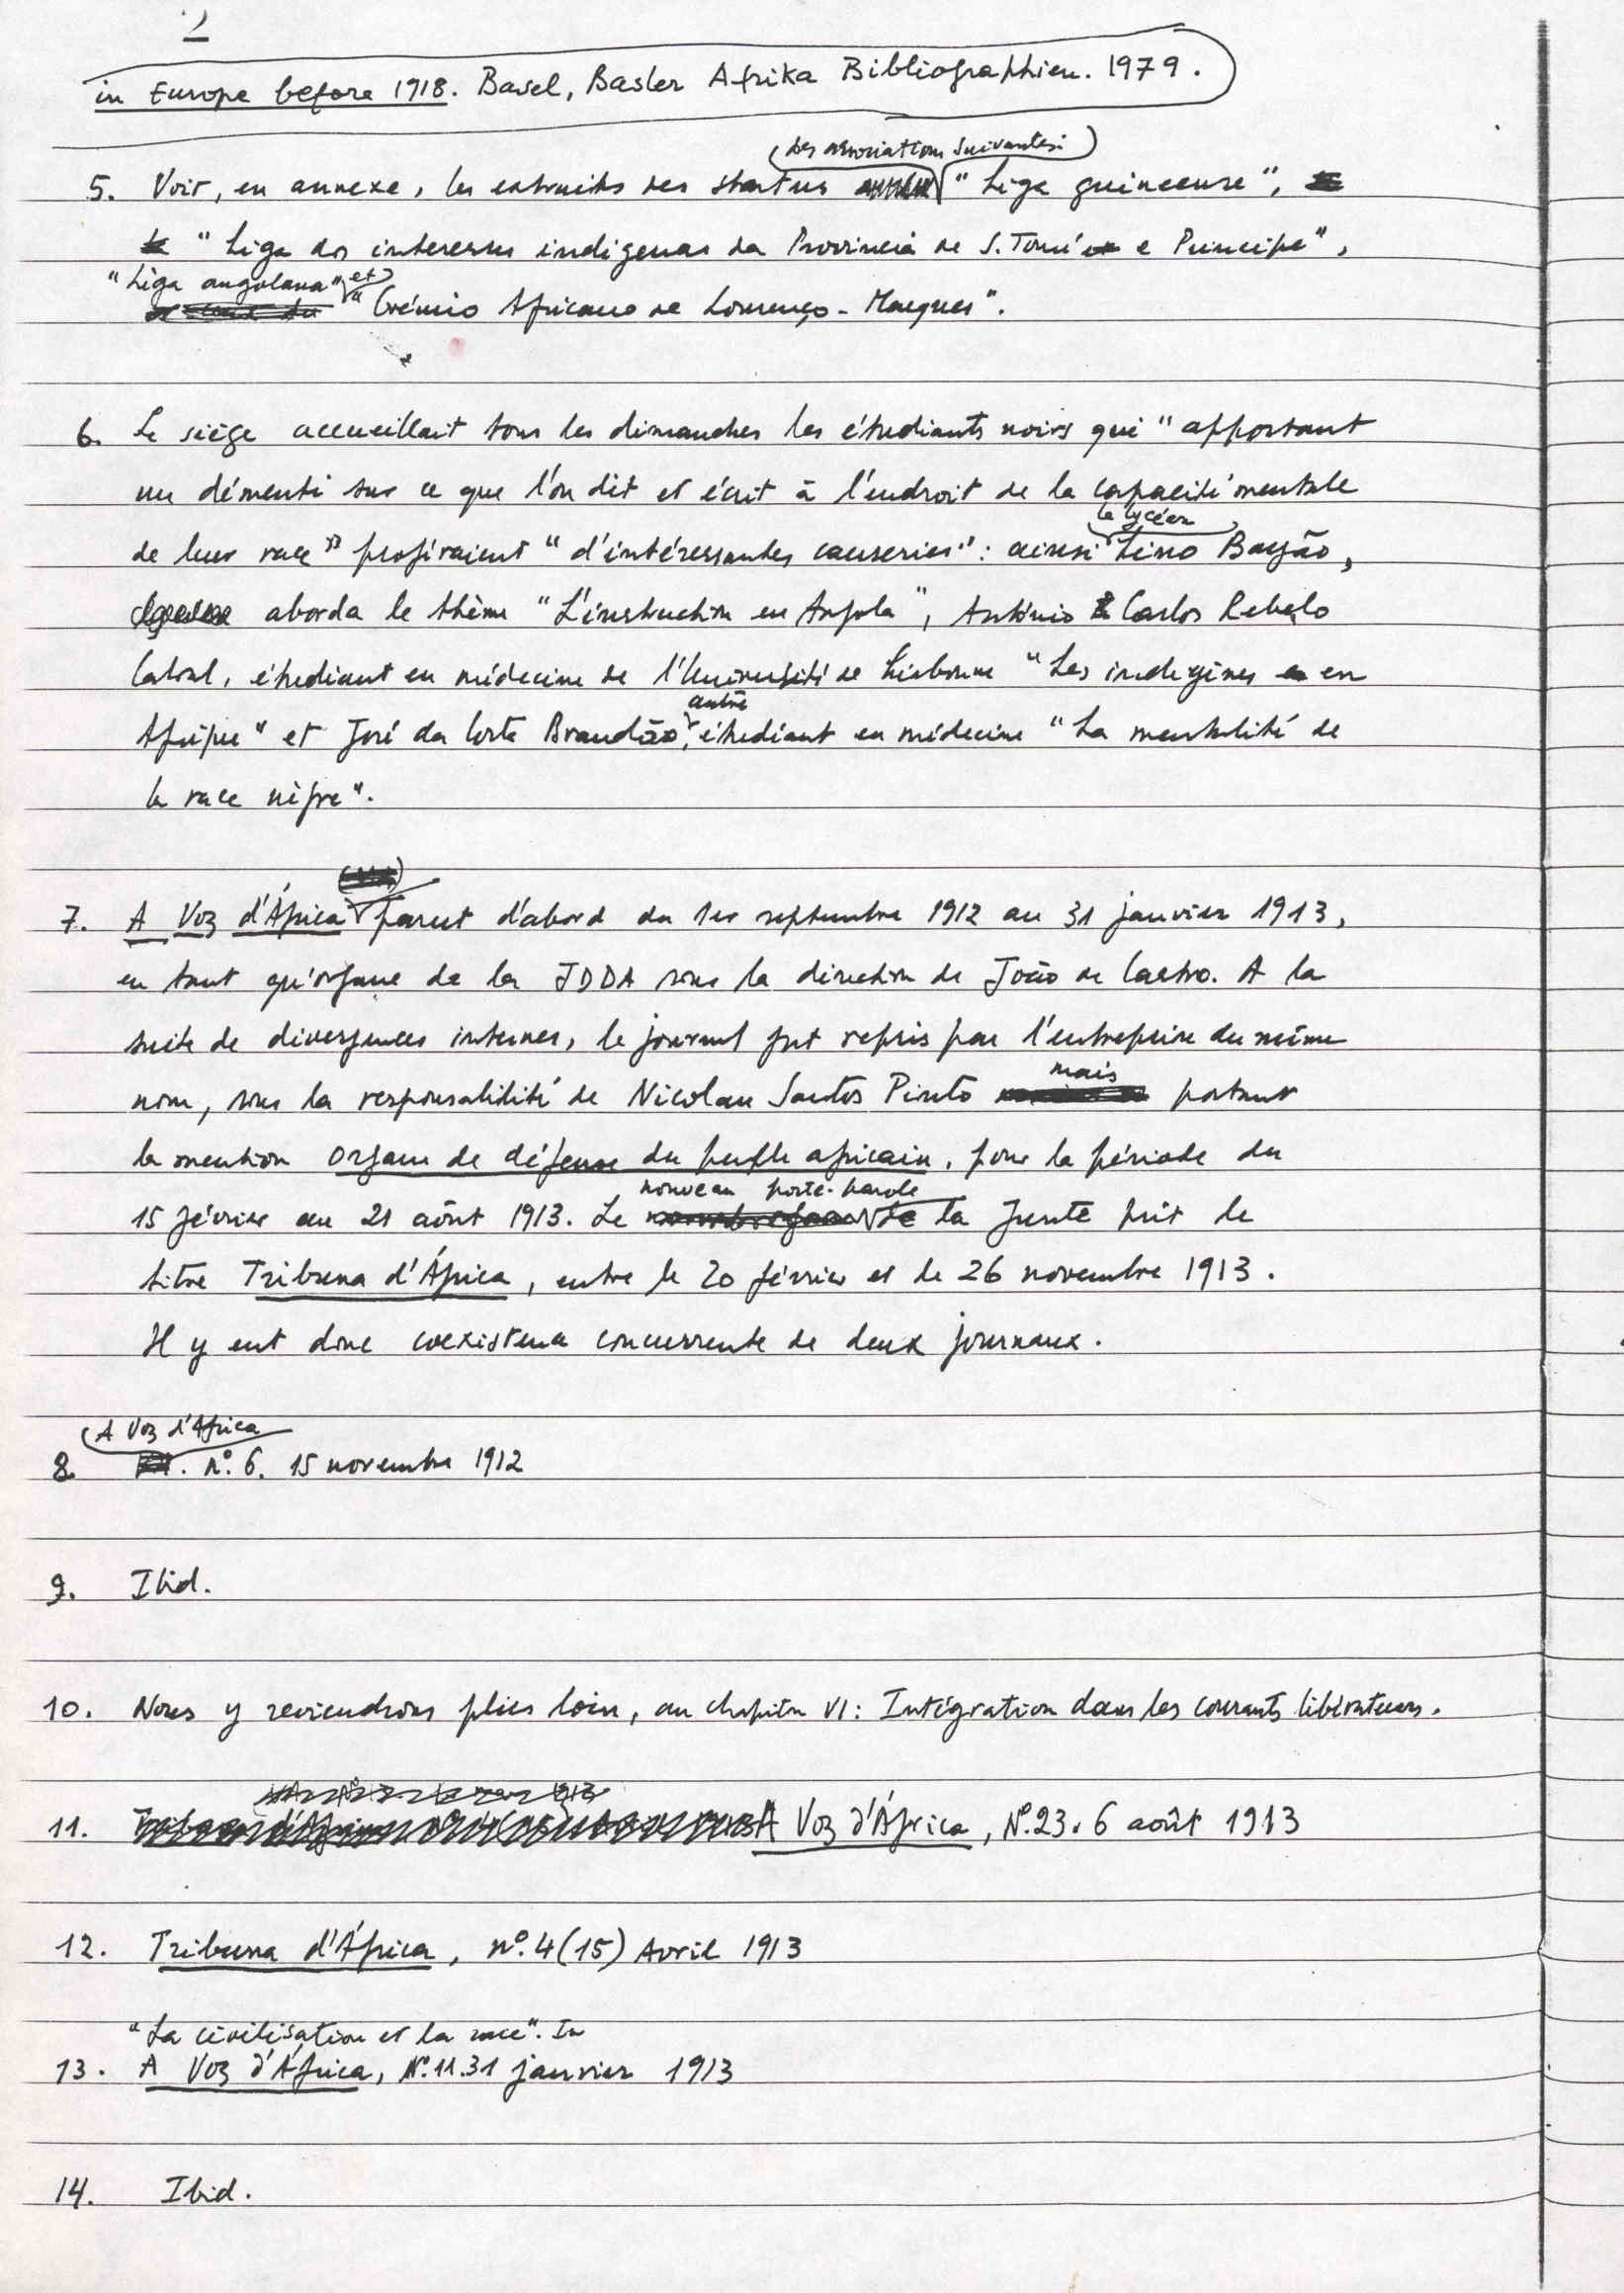 2
in Europe before 1918. Basel, Basler Afrika Bibliographien. 1979.
des associations suivantes:
5. Voir, en annexe, les extraits des statuts "Liga guineense",
"Liga dos interesses indigenas da Provincia de S. Tomé e Principe",
"Liga angolana" et
"Grémio Africano de Lourenço-Marques".
6. Le siège accueillait tous les dimanches les étudiants noirs qui "apportant
un démenti sur ce que l'on dit et écrit à l'endroit de la capacité mentale
le lycéen
de leur race" profiraient "d'intéressantes causeries": ainsi Lino Bayão,
aborda le thème "L'instruction en Angola", António Carlos Rebelo
Cabral, étudiant en médecine de l'Université de Lisbonne "Les indigènes en
autre
Afrique" et José da Costa Brandão, étudiant en médecine "La mentalité de
la race nègre".
7. A Voz d'África parut d'abord du 1er septembre 1912 au 31 janvier 1913,
en tant qu'organe de la JDDA sous la direction de João de Castro. A la
suite de divergences internes, le journal fut repris par l'entreprise du même
mais
nom, sous la responsabilité de Nicolau Santos Pinto portant
la mention Organe de défense du peuple africain, pour la période du
nouveau porte-parole
15 février au 21 août 1913. Le de la Junte prit le
titre Tribuna d'África, entre le 20 février et le 26 novembre 1913.
Il y eut donc coexistence concurrente de deux journaux.
A Voz d'Africa
8. nº. 6. 15 novembre 1912
9. Ibid.
10. Nous y reviendrons plus loin, au chapitre VI: Intégration dans les courants libérateurs.
11. A Voz d'África, Nº.23. 6 août 1913
12. Tribuna d'África, nº.4 (15) Avril 1913
"La civilisation et la race". In
13. A Voz d'África, Nº.11.31 janvier 1913
14. Ibid.